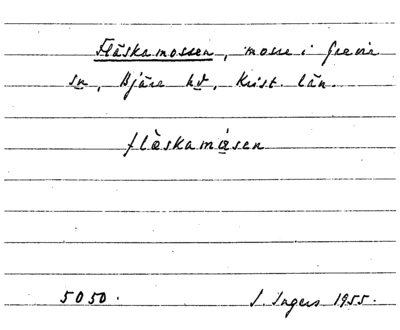 Fläskamossen, mosse i Grevie
sn, Bjäre hd, Krist. län.
flàskamósen
5050. J. Ingers 1955.